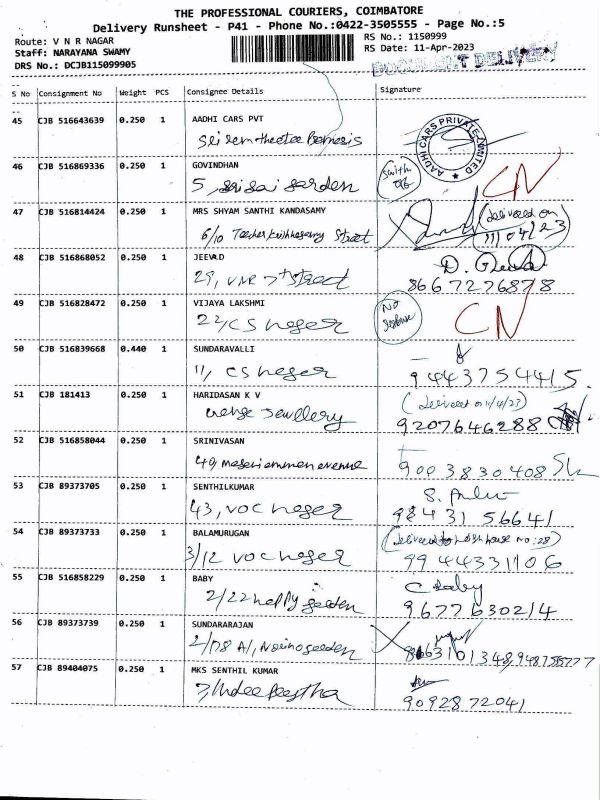 THE PROFESSIONAL COURIERS, COIMBATORE
Delivery Runsheet - P41 - Phone No.:0422-3505555 - Page No.:5
Route: V N R NAGAR
Staff: NARAYANA SWAMY
DRS No.: DCJB115099905
RS No.: 1150999
RS Date: 11-Apr-2023
DOCUMENT DELIVERY
S No Consignment No Weight PCS Consignee Details Signature
45 CJB 516643639 0.250 1 AADHI CARS PVT
AADHI CARS PRIVATE LIMITED
46 CJB 516869336 0.250 1 GOVINDHAN
5, sri sai garden
Switch off
CN
47 CJB 516814424 0.250 1 MRS SHYAM SANTHI KANDASAMY
6/10 Street
(delivered on
11/04/23)
48 CJB 516868052 0.250 1 JEEVA.D
29, VNR 7th Street
8667276878
49 CJB 516828472 0.250 1 VIJAYA LAKSHMI
22/CS neger
No
CN
50 CJB 516839668 0.440 1 SUNDARAVALLI
11, CS neger
9443754415.
51 CJB 181413 0.250 1 HARIDASAN K V
Jewellery
(delivered on 11/4/23)
9207646288
52 CJB 516858044 0.250 1 SRINIVASAN
49, avenue
9003830408
53 CJB 89373705 0.250 1 SENTHILKUMAR
43, VOC neger
98431 56641
54 CJB 89373733 0.250 1 BALAMURUGAN
3/12 VOC neger
house no: 28)
9944331106
55 CJB 516858229 0.250 1 BABY
2/22 happy garden
C Baby
9677630214
56 CJB 89373739 0.250 1 SUNDARARAJAN
57 CJB 89404075 0.250 1 MKS SENTHIL KUMAR
9092872041